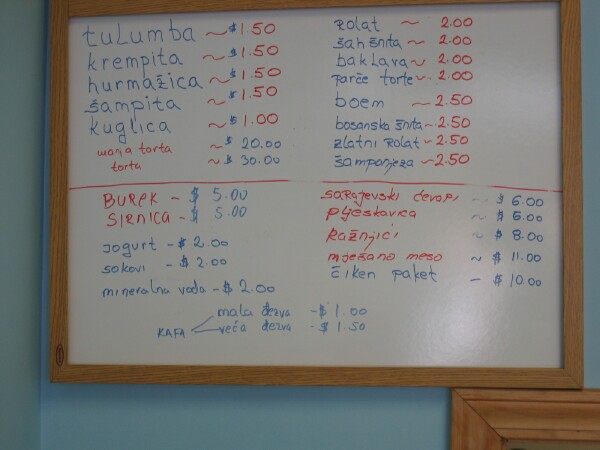 tulumba ~ $ 1.50
krempita ~ $ 1.50
hurmažica ~ $ 1.50
šampita ~ $ 1.50
kuglica ~ $ 1.00
manja torta ~ $ 20.00
torta ~ $ 30.00
rolat ~ 2.00
šah šnita ~ 2.00
baklava ~ 2.00
parče torte ~ 2.00
boem ~ 2.50
bosanska šnita ~ 2.50
zlatni rolat ~ 2.50
šampanjeza ~ 2.50
BUREK - $ 5.00
SIRNICA - $ 5.00
jogurt - $ 2.00
sokovi - $ 2.00
mineralna voda - $ 2.00
KAFA
mala đezva - $ 1.00
veća đezva - $ 1.50
sarajevski ćevapi - $ 6.00
pljeskavica ~ $ 6.00
Ražnjici ~ $ 8.00
mješano meso ~ $ 11.00
čiken paket - $ 10.00